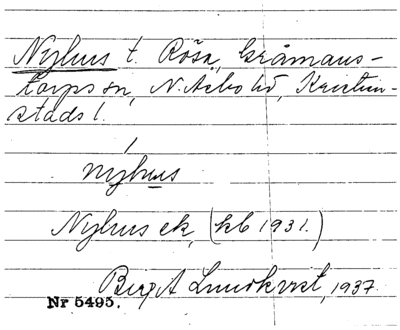 Nyhus t. Röša, Gråmans-
torps sn, N. Åsbo hd, Kristian-
stads l.
nyhus
Nyhus ek, (kb 1931.)
Birgit Lundkvist, 1937.
Nr 5495.